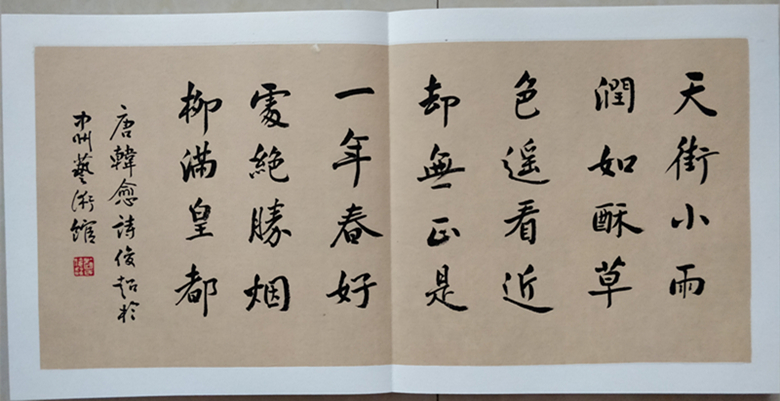 天街小雨
潤如酥草
色遥看近
却無正是
一年春好
處絶勝烟
柳滿皇都
唐韓愈詩俊超於
中州藝術館